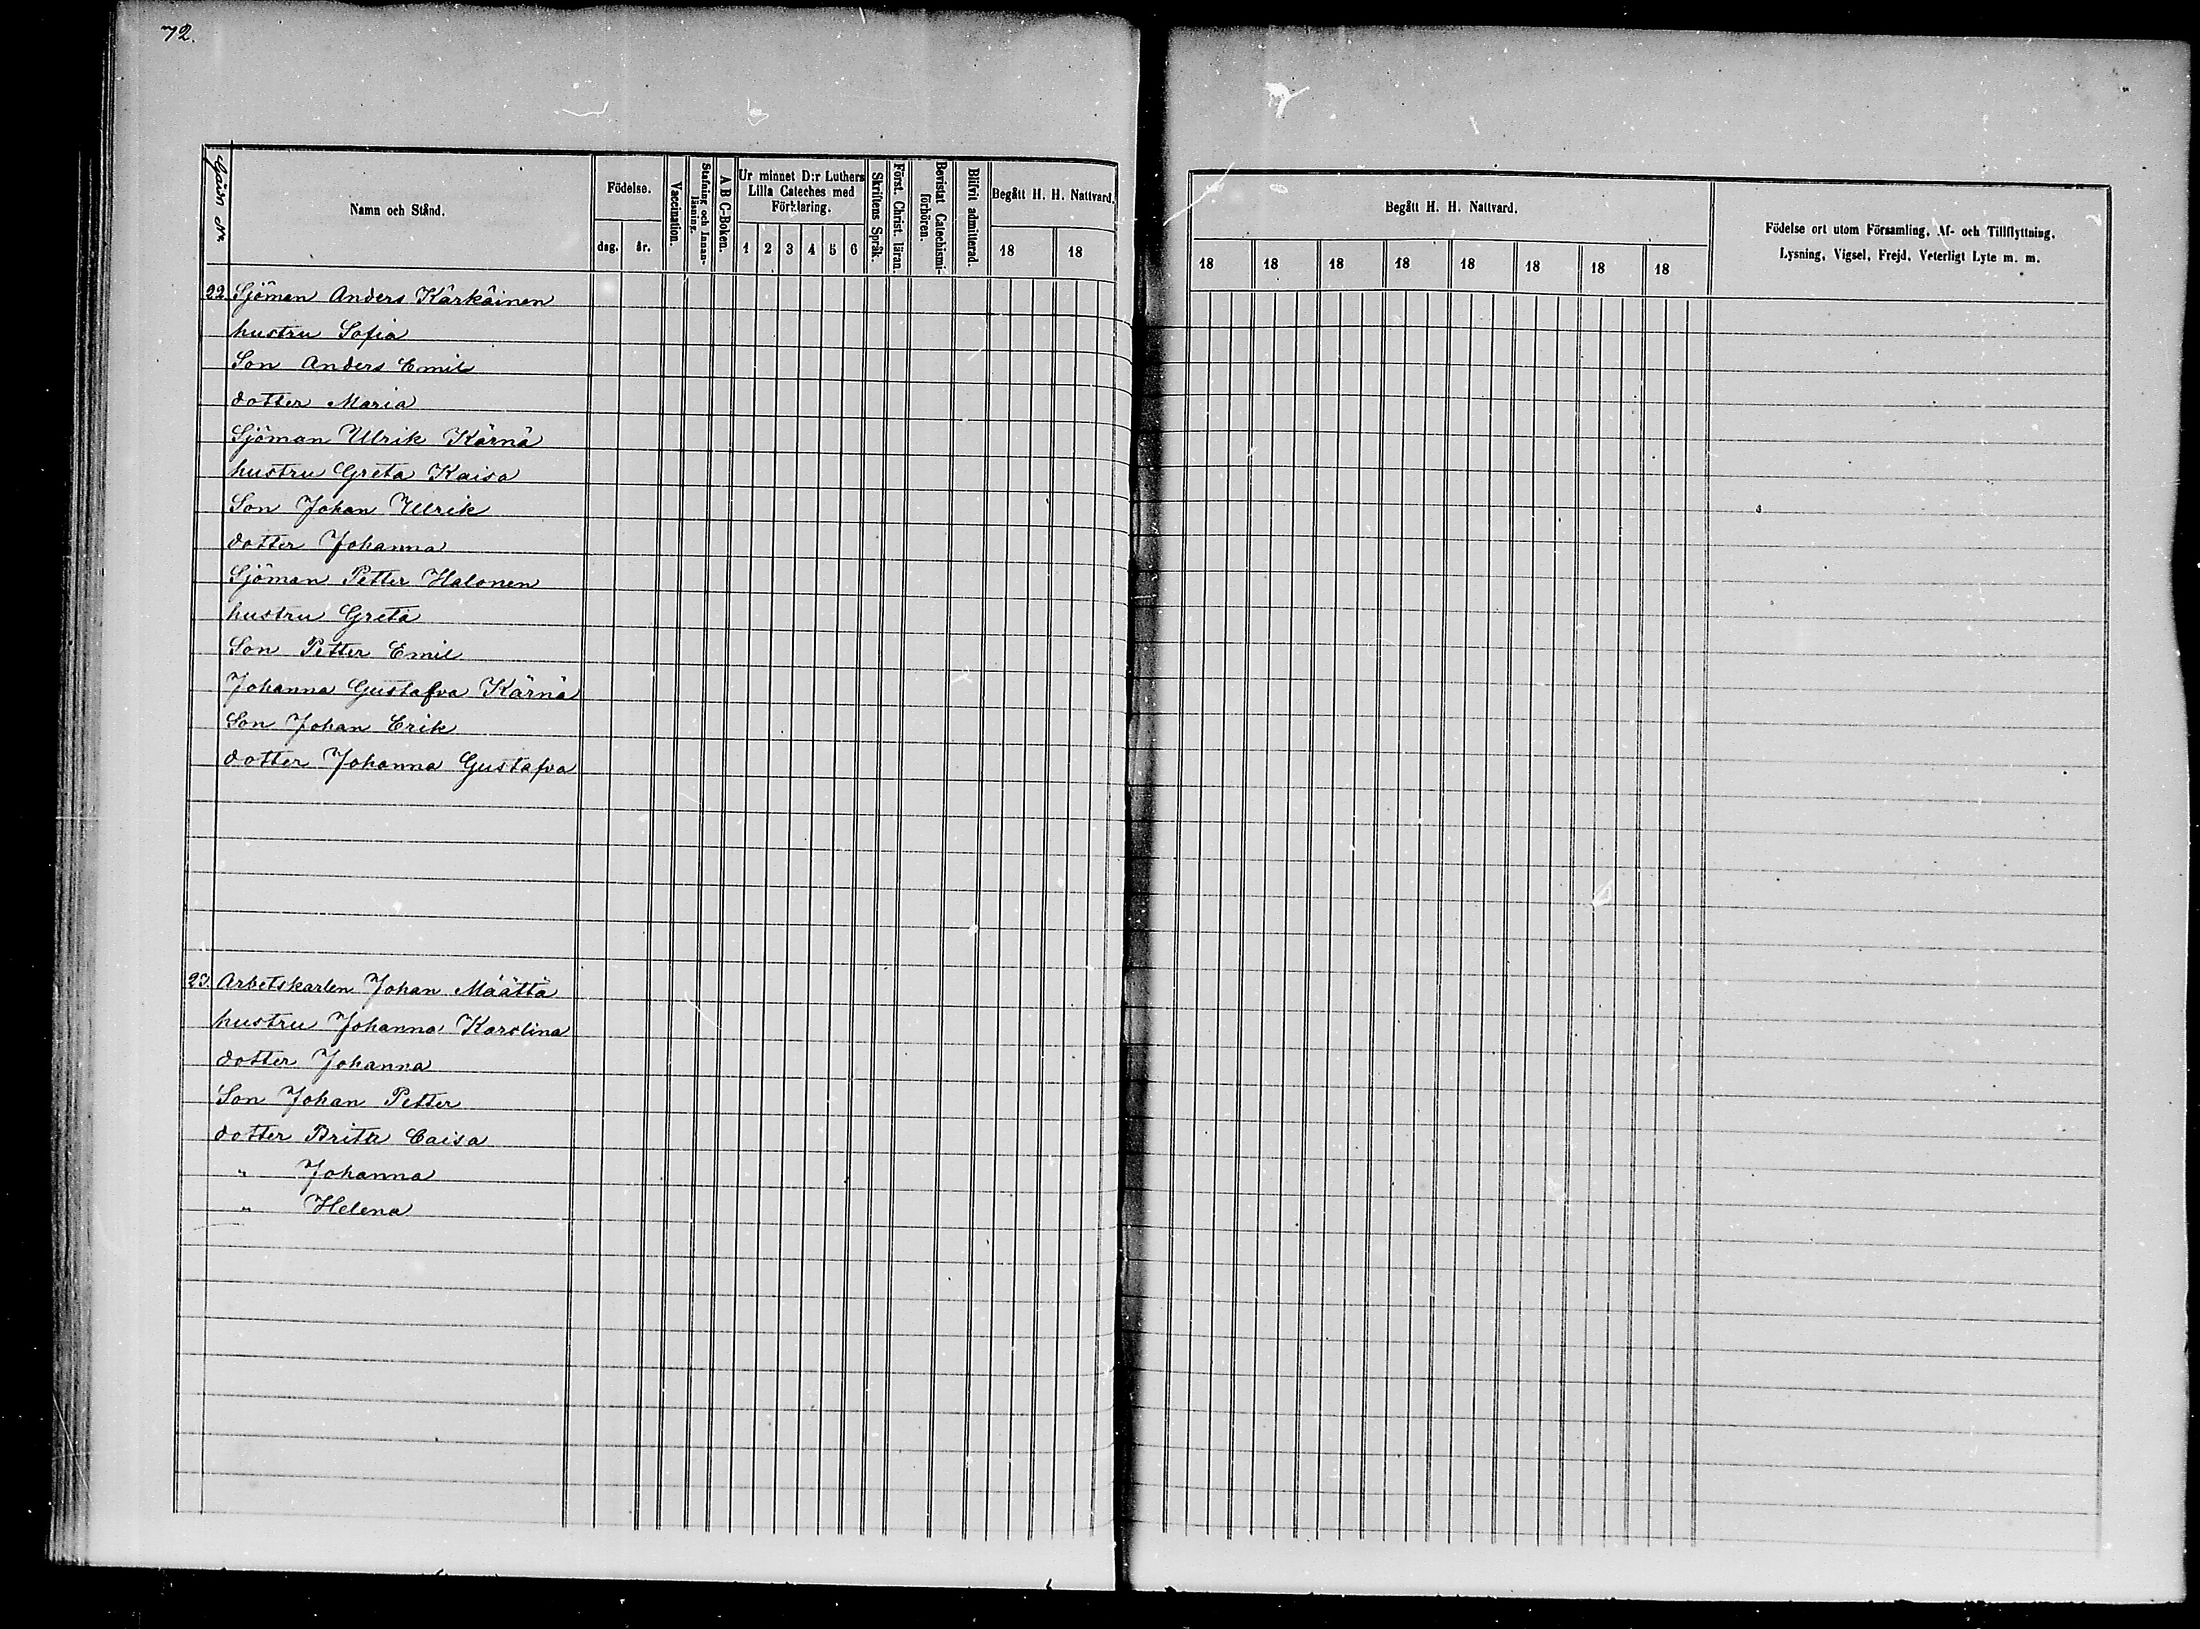 72.
Gård N:
Namn och Stånd.
Födelse.
dag.
år.
Vaccination.
Stafning och Innan-
läsning.
A B C-Boken.
Ur minnet D:r Luthers
Lilla Cateches med
Förklaring.
1 2 3 4 5 6
Skriftens Språk.
Först. Christ. läran.
Bevistat Catechismi-
förhören.
Blifvit admitterad.
Begått H. H. Nattvard.
18 18
Begått H. H. Nattvard.
18 18 18 18 18 18 18 18
Födelse ort utom Församling, Af- och Tillflyttning,
Lysning, Vigsel, Frejd, Veterligt Lyte m. m.
22 Sjöman Anders Kärkäinen
hustru Sofia
Son Anders Emil
dotter Maria
Sjöman Ulrik Kärnä
hustru Greta Kaisa
Son Johan Ulrik
dotter Johanna
Sjöman Petter Halonen
hustru Greta
Son Petter Emil
Johanna Gustafva Kärnä
Son Johan Erik
dotter Johanna Gustafva
23. Arbetskarlen Johan Määttä
hustru Johanna Karolina
dotter Johanna
Son Johan Petter
dotter Brita Caisa
" Johanna
" Helena